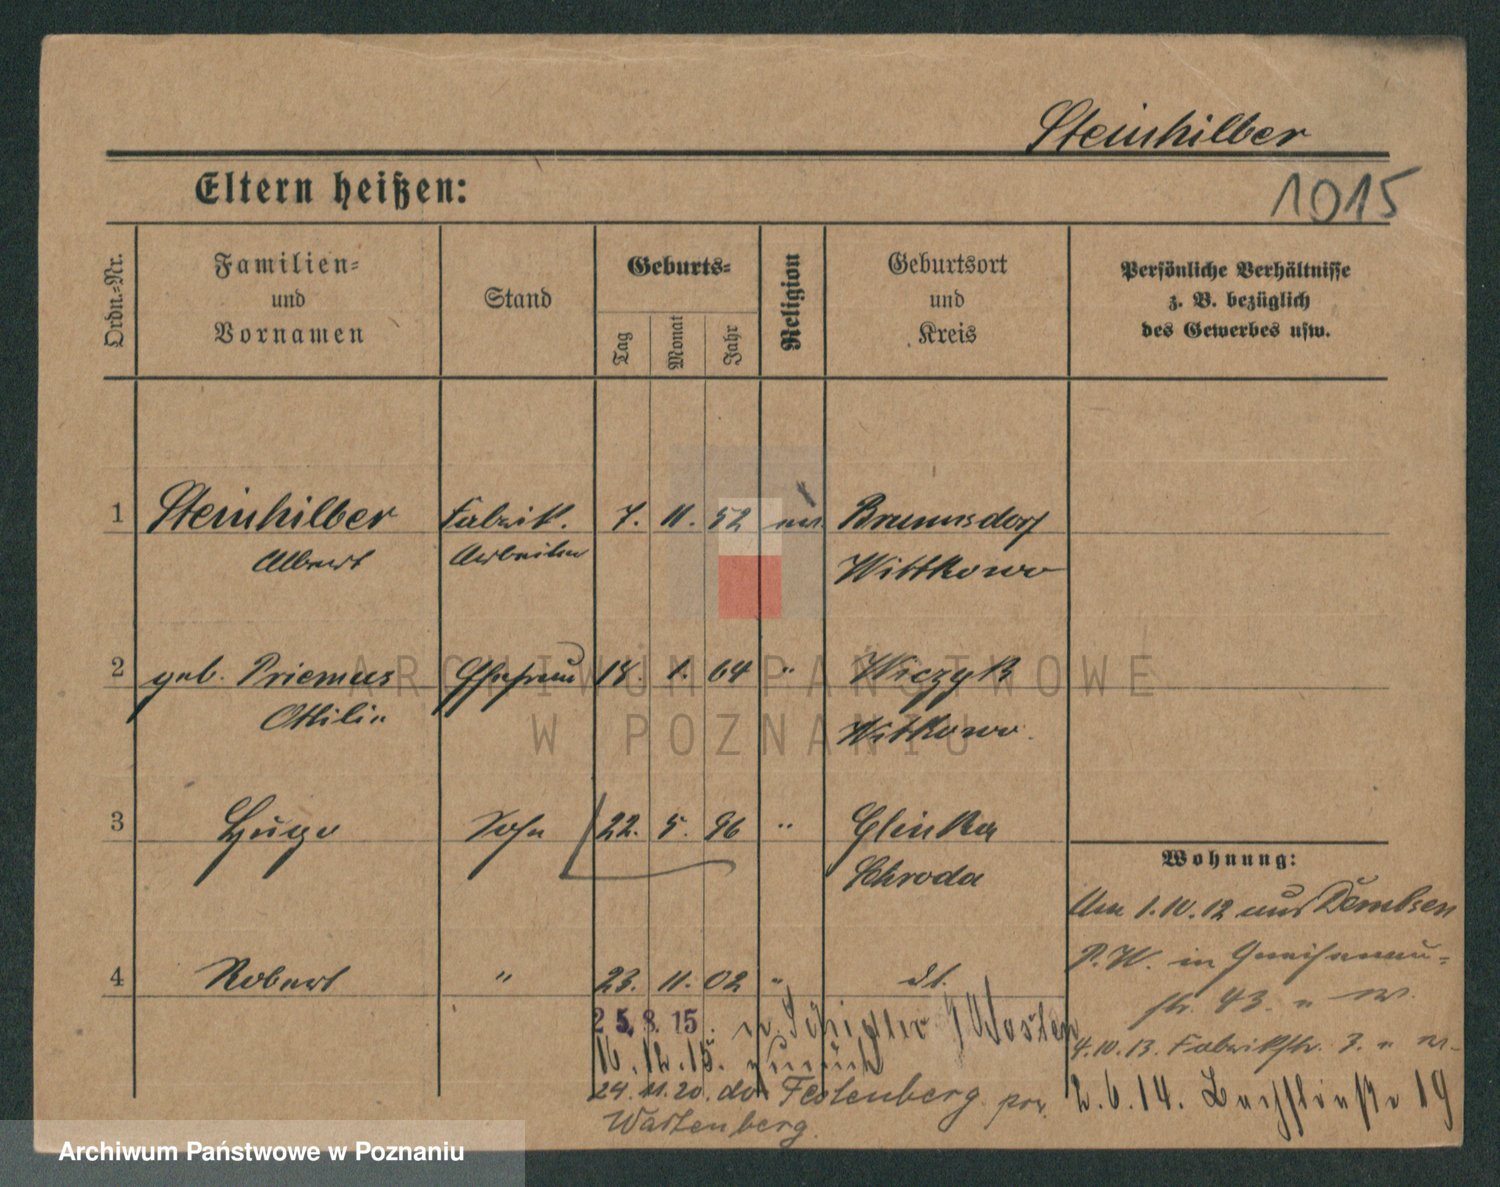 Steinhilber
1015
Eltern heißen:
Ordn.-Nr.
Familien-
und
Vornamen
Stand
Geburts-
Tag
Monat
Jahr
Religion
Geburtsort
und
Kreis
Persönliche Verhältnisse
z. B. bezüglich
des Gewerbes usw.
1 Steinhilber Fabrik. 7. 11. 52 ev Brunnsdorf
Albert Arbeiter Wittkowo
2 geb. Priemus Ehefrau 18. 1. 64 " Wiczyk
Ottilie Witkowo.
3 Hugo Sohn 22. 5. 96 " Glinka
Schroda
4 Robert " 23. 11. 02 " dt.
Wohnung:
Am 1.10.12 aus Dembsen
P.W. in Gneisenau-
str. 43.
4.10.13. Fabrikstr. 3.
2.6.14. 19
25.8.15. n.
16.12.15. zurück
24.11.20. do Festenberg
Wartenberg.
ARCHIWUM PAŃSTWOWE
W POZNANIU
Archiwum Państwowe w Poznaniu